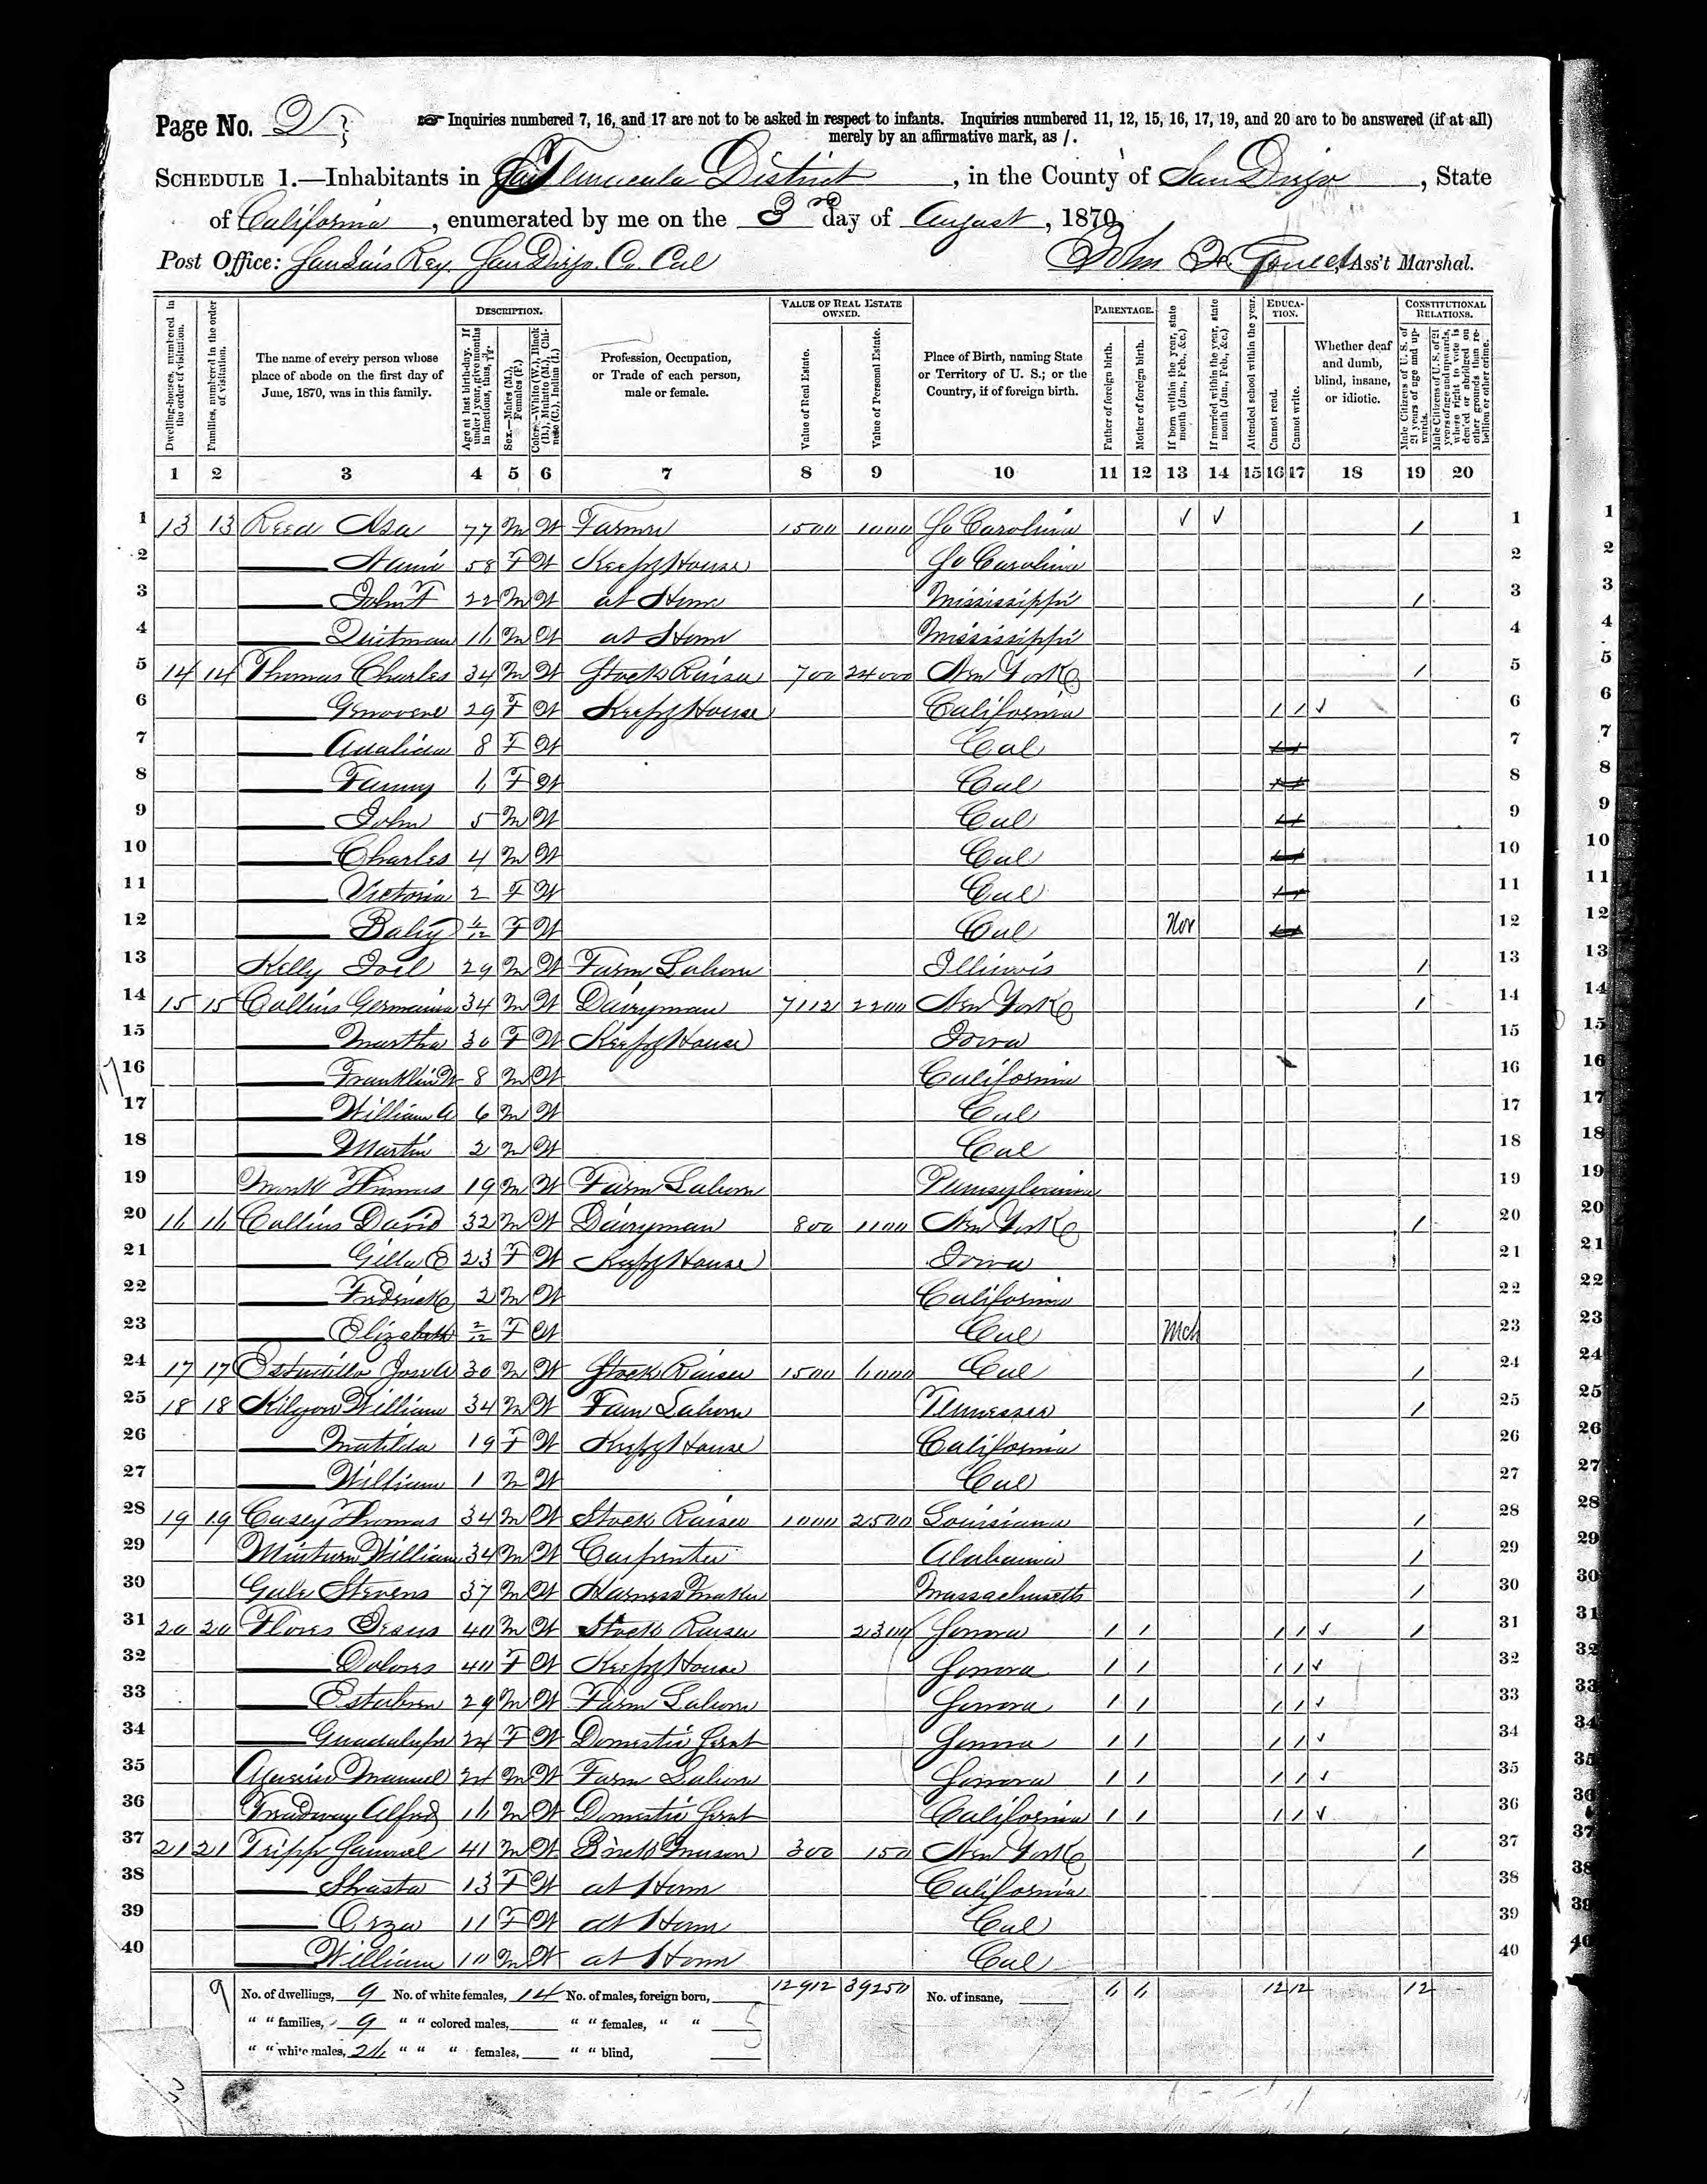 Page No. 2
Inquiries numbered 7, 16, and 17 are not to be asked in respect to infants. Inquiries numbered 11, 12, 15, 16, 17, 19, and 20 are to be answered (if at all)
merely by an affirmative mark, as /.
SCHEDULE 1.—Inhabitants in Temecula District, in the County of San Diego, State
of California, enumerated by me on the 3rd day of August, 1870
Post Office: San Luis Rey San Diego Co. Cal John Ass't Marshal.
Dwelling-houses, numbered in the order of visitation.
Families, numbered in the order of visitation.
The name of every person whose place of abode on the first day of June, 1870, was in this family.
DESCRIPTION.
Age at last birth-day. If under 1 year, give months in fractions, thus, 3/12.
Sex.—Males (M.), Females (F.)
Color.—White (W.), Black (B.), Mulatto (M.), Chinese (C.), Indian (I.)
Profession, Occupation, or Trade of each person, male or female.
VALUE OF REAL ESTATE OWNED.
Value of Real Estate.
Value of Personal Estate.
Place of Birth, naming State or Territory of U. S.; or the Country, if of foreign birth.
PARENTAGE.
Father of foreign birth.
Mother of foreign birth.
If born within the year, state month (Jan., Feb., &c.)
If married within the year, state month (Jan., Feb., &c.)
Attended school within the year.
EDUCATION.
Cannot read.
Cannot write.
Whether deaf and dumb, blind, insane, or idiotic.
CONSTITUTIONAL RELATIONS.
Male Citizens of U. S. of 21 years of age and upwards.
Male Citizens of U. S. of 21 years of age and upwards, where right to vote is denied or abridged on other grounds than rebellion or other crime.
1 2 3 4 5 6 7 8 9 10 11 12 13 14 15 16 17 18 19 20
1 13 13 Reed Asa 77 M W Farmer 1500 1000 So Carolina √ √ / 1
2 58 F W Keepg House So Carolina 2
3 John F 22 M W at Home Mississippi / 3
4 Quitman 16 M W at Home Mississippi 4
5 14 14 Thomas Charles 34 M W Stock Raiser 700 24000 New York / 5
6 Genovere 29 F W Keepg House California / / √ 6
7 8 F W Cal 7
8 Fanny 6 F W Cal 8
9 John 5 M W Cal 9
10 Charles 4 M W Cal 10
11 Victoria 2 F W Cal 11
12 Baby F W Cal Nov 12
13 Kelly Joel 29 M W Farm Labom Illinois / 13
14 15 15 Collins Germania 34 M W Dairyman 7112 2200 New York / 14
15 Martha 30 F W Keepg House Iowa 15
16 Franklin W 8 M W California 16
17 William A 6 M W Cal 17
18 Martin 2 M W Cal 18
19 Thomas 19 M W Farm Labom Pennsylvania 19
20 16 16 Collins David 32 M W Dairyman 800 1100 New York / 20
21 E 23 F W Keepg House Iowa 21
22 Frederick 2 M W California 22
23 Elizabeth 2/12 F W Cal Mch 23
24 17 17 Estudillo Jose A 30 M W Stock Raiser 1500 6000 Cal / 24
25 18 18 Kilgore William 34 M W Farm Labom Tennessee / 25
26 Matilda 19 F W Keepg House California 26
27 William 1 M W Cal 27
28 19 19 Casey Thomas 34 M W Stock Raiser 1000 2500 Louisiana / 28
29 Minturn William 34 M W Carpenter Alabama / 29
30 Gale Stevens 37 M W Harness Maker Massachusetts / 30
31 20 20 Flores Jesus 40 M W Stock Raiser 2300 Sonora / / / / √ / 31
32 Dolores 40 F W Keepg House Sonora / / / / √ 32
33 29 M W Farm Labom Sonora / / / / √ 33
34 Guadalupe 24 F W Domestic Servt Sonora / / / / √ 34
35 Manuel 24 M W Farm Labom Sonora / / / / √ 35
36 Alfred 16 M W Domestic Servt California / / / / √ 36
37 21 21 Tripp Samuel 41 M W Brick Mason 300 150 New York / 37
38 Shasta 13 F W at Home California 38
39 11 F W at Home Cal 39
40 William 10 M W at Home Cal 40
9 No. of dwellings, 9 No. of white females, 14 No. of males, foreign born, 12912 39250 No. of insane, 6 6 12 12 12
" " families, 9 " " colored males, " " females, " " 5
" " white males, 26 " " " females, " " blind,